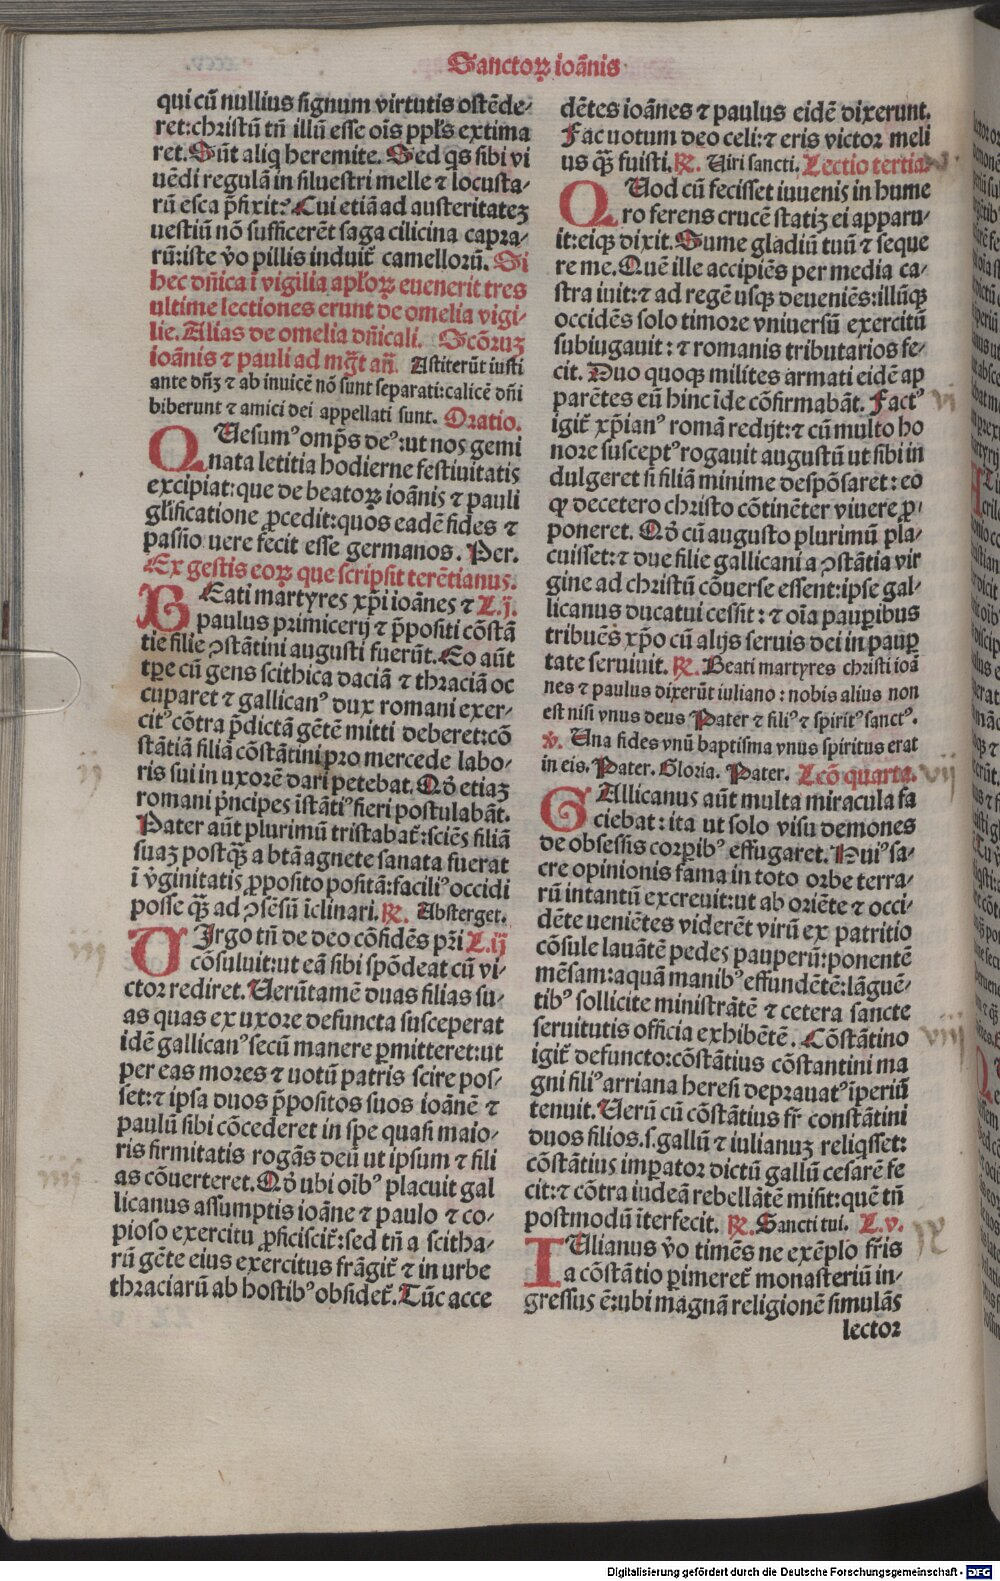 Sanctoꝝ ioānis
qui cū nullius signum virtutis ostēde-
ret:christū tn̄ illū esse oīs ppl's extima
ret. Sūt aliq heremite. Sed qs sibi vi
uēdi regulā in siluestri melle ⁊ locusta-
rū esca p̄fixit? Cui etiā ad austeritateꝫ
uestiū nō sufficerēt saga cilicina capra-
rū:iste v̊o pillis induit̄ camellorū. Si
hec dn̄ica ī vigilia apl'oꝝ euenerit tres
ultime lectiones erunt de omelia vigi-
lie. Alias de omelia dn̄icali. Scōruꝫ
ioānis ⁊ pauli ad mḡt an̄. Astiterūt iusti
ante dn̄ꝫ ⁊ ab inuicē nō sunt separati:calicē dn̄i
biberunt ⁊ amici dei appellati sunt. Oratio.
QUesumꝰ omp̄s deꝰ:ut nos gemi
nata letitia hodierne festiuitatis
excipiat:que de beatoꝝ ioānis ⁊ pauli
gl'ificatione ꝓcedit:quos eadē fides ⁊
passio uere fecit esse germanos. Per.
Ex gestis eoꝝ que scripsit terētianus.
BEati martyres xp̄i ioānes ⁊ L.ij.
paulus primicerij ⁊ p̄positi cōstā
tie filie ꝯstātini augusti fuerūt. Eo aūt
tꝑe cū gens scithica daciā ⁊ thraciā oc
cuparet ⁊ gallicanꝰ dux romani exer-
citꝰ cōtra p̄dictā gētē mitti deberet:cō
stātiā filiā cōstātini pro mercede labo-
ris sui in uxorē dari petebat. Qd̊ etiaꝫ
romani p̄ncipes īstātiꝰ fieri postulabāt.
Pater aūt plurimū tristabat̄:sciēs filiā
suaꝫ postꝙ̄ a btā agnete sanata fuerat
ī v̊ginitatis ꝓposito positā:faciliꝰ occidi
posse ꝙ̄ ad ꝯsēsū īclinari. ℟. Absterget.
UIrgo tn̄ de deo cōfidēs pr̄i L.iij
cōsuluit:ut eā sibi spōdeat cū vi-
ctor rediret. Uerūtamē duas filias su-
as quas ex uxore defuncta susceperat
idē gallicanꝰ secū manere ꝑmitteret:ut
per eas mores ⁊ uotū patris scire pos-
set:⁊ ipsa duos p̄positos suos ioānē ⁊
paulū sibi cōcederet in spe quasi maio-
ris firmitatis rogās deū ut ipsum ⁊ fili
as cōuerteret. Qd̊ ubi oībꝰ placuit gal
licanus assumptis ioāne ⁊ paulo ⁊ co-
pioso exercitu ꝓficiscit̄:sed tn̄ a scitha-
rū gēte eius exercitus frāgit̄ ⁊ in urbe
thraciarū ab hostibꝰ obsidet̄. Tūc acce
dētes ioānes ⁊ paulus eidē dixerunt.
Fac uotum deo celi:⁊ eris victor meli
us ꝙ̄ fuisti. ℟. Uiri sancti. Lectio tertia.
QUod cū fecisset iuuenis in hume
ro ferens crucē statiꝫ ei apparu-
it:eiqꝫ dixit. Sume gladiū tuū ⁊ seque
re me. Quē ille accipiēs per media ca-
stra iuit:⁊ ad regē usqꝫ deueniēs:illūqꝫ
occidēs solo timore vniuersū exercitū
subiugauit: ⁊ romanis tributarios fe-
cit. Duo quoqꝫ milites armati eidē ap
parētes eū hinc īde cōfirmabāt. Factꝰ
igit̄ xp̄ianꝰ romā redijt:⁊ cū multo ho
nore susceptꝰ rogauit augustū ut sibi in
dulgeret si filiā minime despōsaret: eo
ꝙ decetero christo cōtinēter viuere ꝓ-
poneret. Qd̊ cū augusto plurimū pla-
cuisset:⁊ due filie gallicani a ꝯstātia vir
gine ad christū cōuerse essent:ipse gal-
licanus ducatui cessit: ⁊ oīa pauꝑibus
tribuēs xp̄o cū alijs seruis dei in pauꝑ
tate seruiuit. ℟. Beati martyres christi ioā
nes ⁊ paulus dixerūt iuliano: nobis alius non
est nisi vnus deus Pater ⁊ filiꝰ ⁊ spiritꝰ sanctꝰ.
℣. Una fides vnū baptisma vnus spiritus erat
in eis. Pater. Gloria. Pater. Lcō quarta.
GAllicanus aūt multa miracula fa
ciebat: ita ut solo visu demones
de obsessis corꝑibꝰ effugaret. Huiꝰ sa-
cre opinionis fama in toto orbe terra-
rū intantū excreuit:ut ab oriēte ⁊ occi-
dēte ueniētes viderēt virū ex patritio
cōsule lauātē pedes pauperū:ponentē
mēsam:aquā manibꝰ effundētē:lāguē-
tibꝰ sollicite ministrātē ⁊ cetera sancte
seruitutis officia exhibētē. Cōstātino
igit̄ defuncto:cōstātius cōstantini ma
gni filiꝰ arriana heresi deprauatꝰ īperiū
tenuit. Uerū cū cōstātius fr̄ constātini
duos filios.s.gallū ⁊ iulianuꝫ reliqsset:
cōstātius imꝑator dictū gallū cesarē fe
cit:⁊ cōtra iudeā rebellātē misit:quē tn̄
postmodū īterfecit. ℟. Sancti tui. L.v.
IUlianus v̊o timēs ne exēplo fr̄is
a cōstātio ꝑimeret̄ monasteriū in-
gressus ē:ubi magnā religionē simulās
lector
ij
iij
iiij
vi
vij
viij
Digitalisierung gefördert durch die Deutsche Forschungsgemeinschaft - DFG